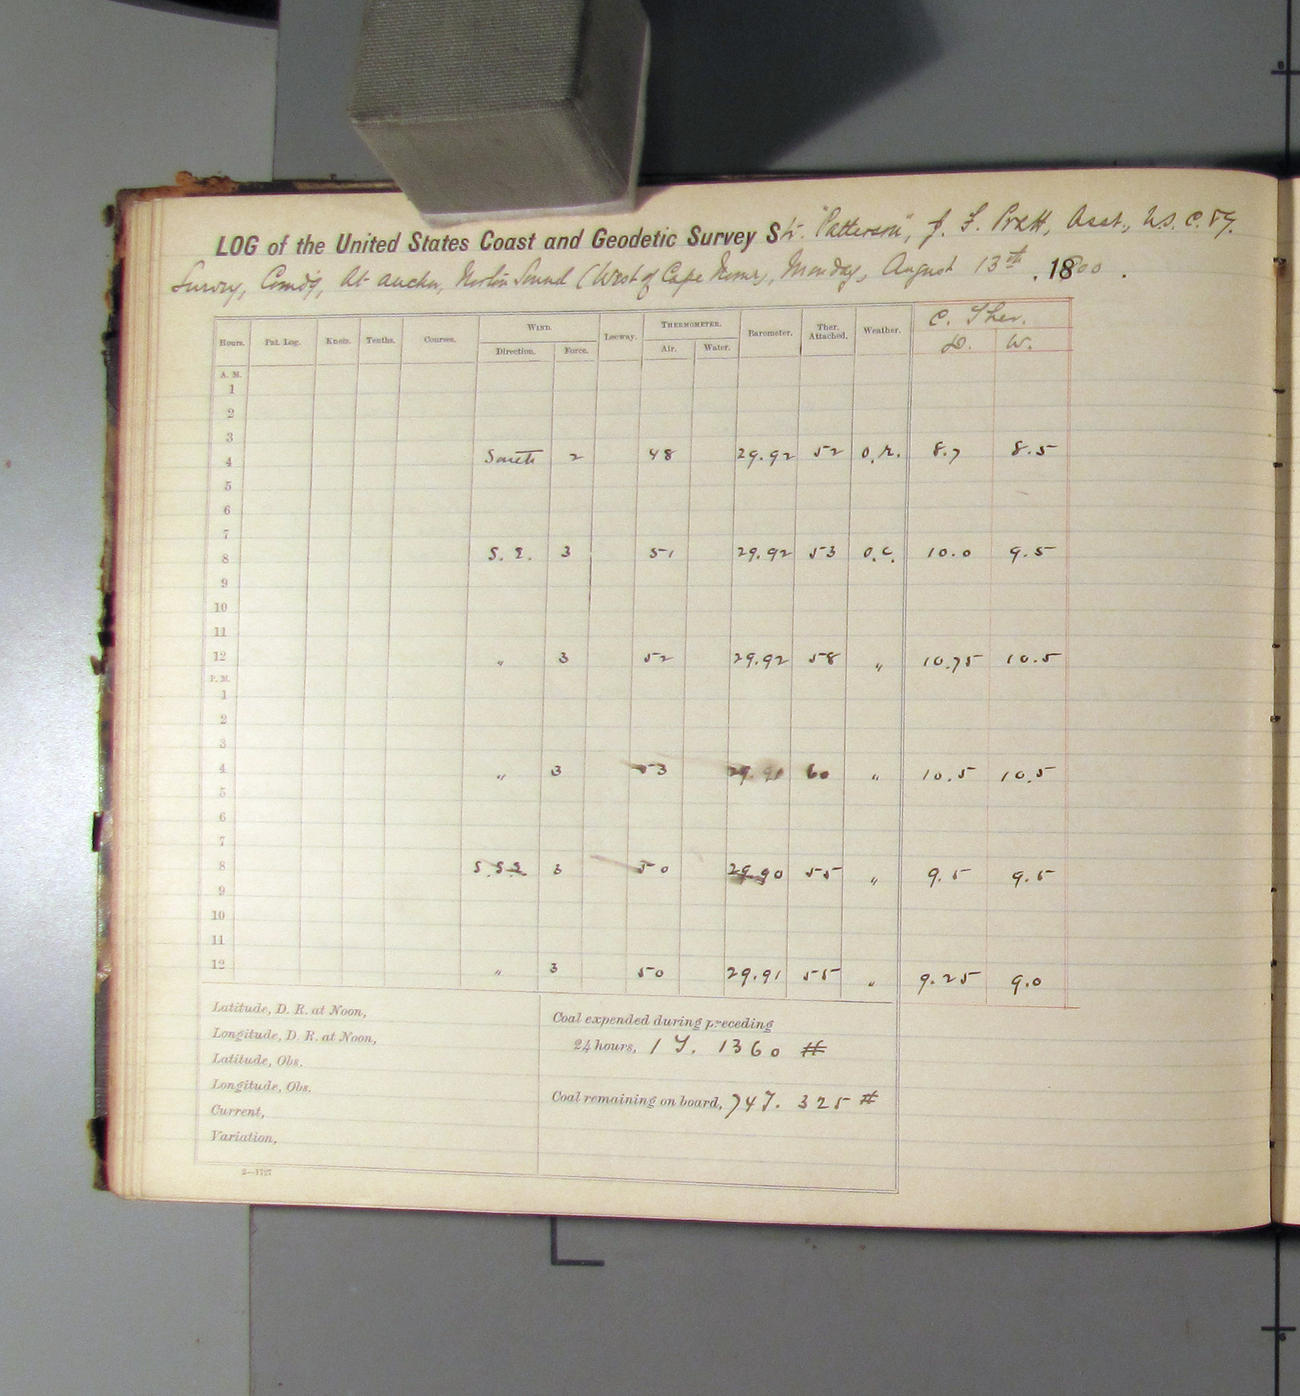 LOG of the United States Coast and Geodetic Survey Str. "Patterson", J. F. Pratt, Asst., U.S. C. & G.
Survey, Comd'g, At anchor, Norton Sound (West of Cape Nome), Monday, August 13th, 1900.
Hours. Pat. Log. Knots. Tenths. Courses. WIND. Leeway. THERMOMETER. Barometer. Ther. Attached. Weather. C. Ther.
Direction. Force. Air. Water. D. W.
A. M.
1
2
3
4 South 2 48 29.92 52 O.R. 8.7 8.5
5
6
7
8 S.E. 3 51 29.92 53 O.C. 10.0 9.5
9
10
11
12 " 3 52 29.92 58 " 10.75 10.5
P. M.
1
2
3
4 " 3 53 29.91 60 " 10.5 10.5
5
6
7
8 S.S.E. 3 50 29.90 55 " 9.5 9.5
9
10
11
12 " 3 50 29.91 55 " 9.25 9.0
Latitude, D. R. at Noon,
Longitude, D. R. at Noon,
Latitude, Obs.
Longitude, Obs.
Current,
Variation,
Coal expended during preceding
24 hours, 1 T. 1360 #
Coal remaining on board, 74 T. 325 #
2—1727